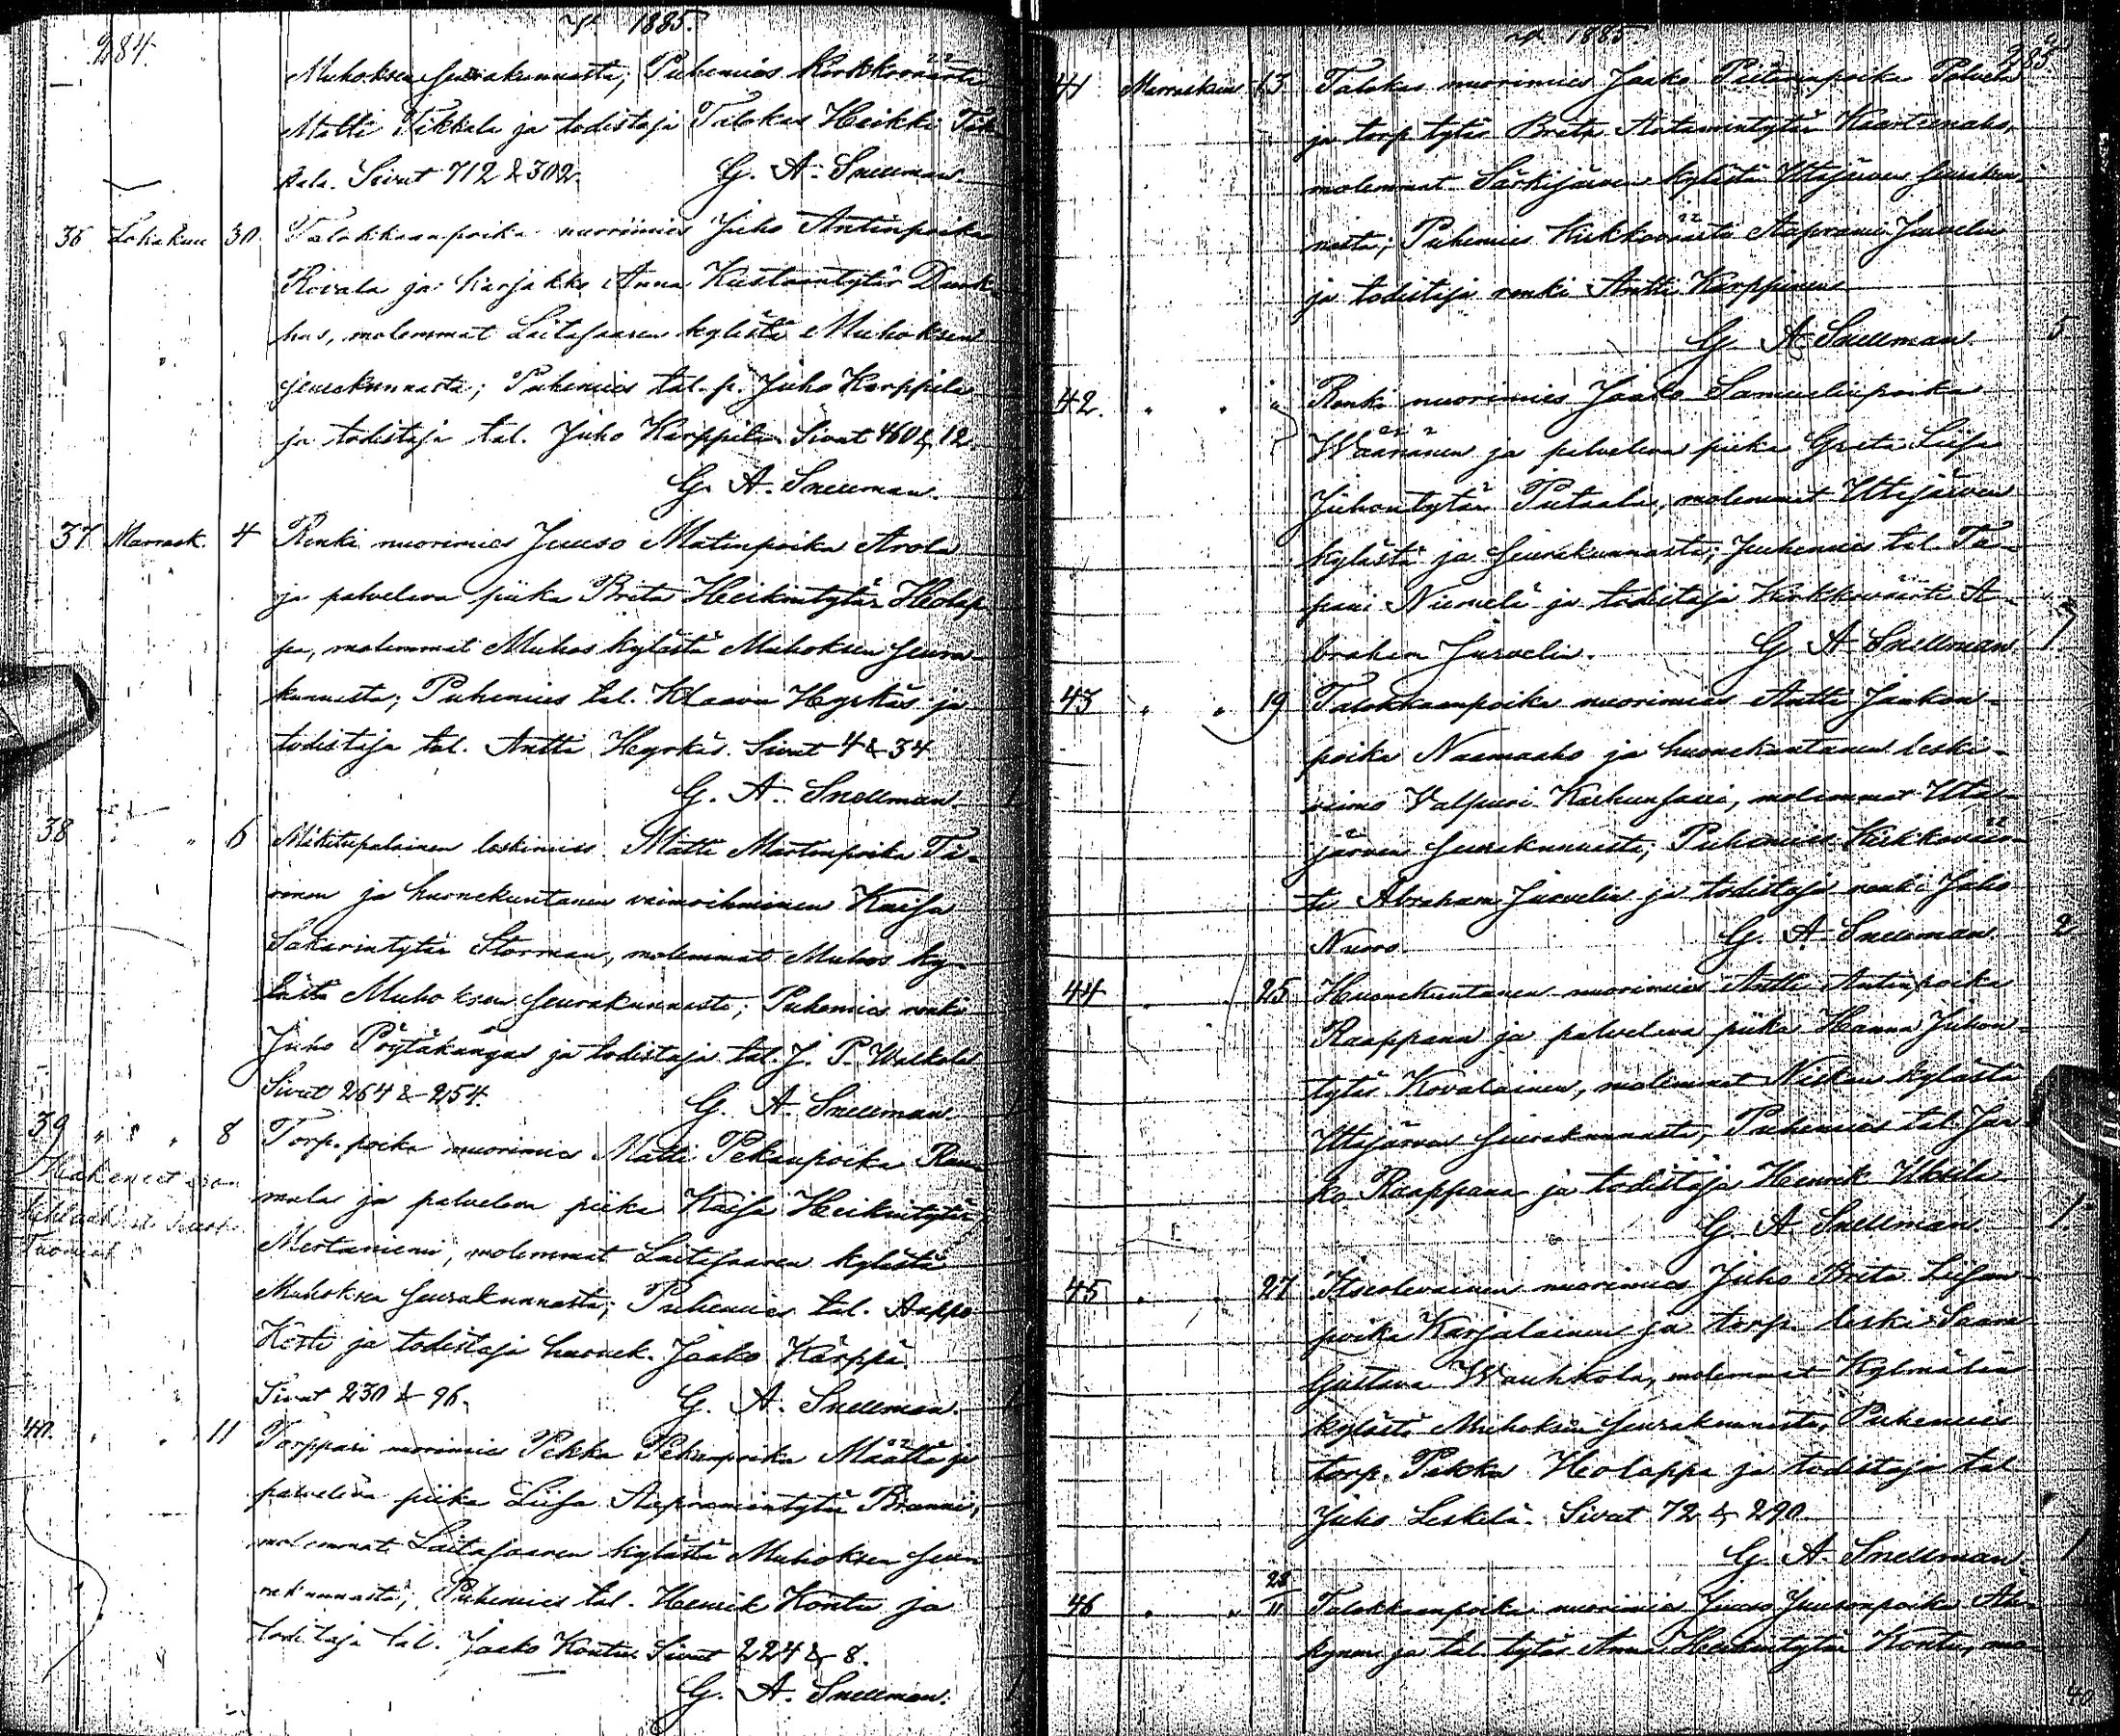 284.
v. 1885.
Muhoksen seurakunnasta; Puhemies Kirkkoväärti
Matti Tikkala ja todistaja Talokas Heikki Tik-
kala. Sivut 712 & 302. G. A. Snellman.
36 Lokakuu 30. Talokkaanpoika nuorimies Juho Antinpoika
Rovala ja karjakko Anna Kustaantytär Dunk-
hus, molemmat Laitasaaren kylästä Muhoksen
seurakunnasta; Puhemies tal. p. Juho Karppila
ja todistaja tal. Juho Karppila. Sivut 460 & 12.
G. A. Snellman.
37. Marrask. 4 Renki nuorimies Juuso Matinpoika Arola
ja palveleva piika Brita Heikintytär Holap-
pa, molemmat Muhos kylästä Muhoksen seura-
kunnasta; Puhemies tal. Klaava Hyrkäs ja
todistaja tal. Antti Hyrkäs. Sivut 4 & 34.
G. A. Snellman. 1
38 " " 6 Mäkitupalainen leskimies Matti Martinpoika
ja huonekuntanen vaimoihminen Kaisa
Sakarintytär Storman, molemmat Muhos ky-
lästä Muhoksen seurakunnasta; Puhemies renki
Juho Pöytäkangas ja todistaja tal. J. P. Walkola
Sivut 264 & 254. G. A. Snellman. 1
39 " " 8 Torp. poika nuorimies Matti Pekanpoika
ja palveleva piika Kaisa Heikintytär
Mertaniemi, molemmat Laitasaaren kylästä
Muhoksen seurakunnasta; Puhemies tal. Aappo
Kesti ja todistaja huonek. Jaako Kärppä.
Sivut 230 & 96. G. A. Snellman. 1
40. " " 11 Torppari nuorimies Pekka Pekanpoika Määttä ja
palveleva piika Liisa Aapramintytär
molemmat Laitasaaren kylästä Muhoksen seu-
rakunnasta; Puhemies tal. Henrik Kontu ja
todistaja tal. Jaako Kontu. Sivut 224 & 8.
G. A. Snellman. 1
v. 1885.
285.
41 Marraskuu 13 Talokas nuorimies Jaako Pietarinpoika
ja torp. tytär Brita Antamintytär
molemmat Särkijärven kylästä Utajärven seurakun-
nasta; Puhemies Kirkkoväärti Aaprami Juvelin
ja todistaja renki Antti Karppinen
G. A. Snellman. 5
42. " " " Renki nuorimies Jaako Samuelinpoika
Väänänen ja palveleva piika Greta Liisa
Juhontytär Putaala, molemmat Utajärven
kylästä ja seurakunnasta; Puhemies tal. Ta-
pani Niemelä ja todistaja Kirkkoväärti A-
braham Juvelin. G. A. Snellman. 1
43 " " 19 Talokkaanpoika nuorimies Antti Jaakon-
poika Naamaaho ja huonekuntanen leski-
vaimo Valpuri molemmat Uta-
järven seurakunnasta; Puhemies Kirkkoväär-
ti Abraham Juvelin ja todistaja renki Juho
G. A. Snellman. 2
44 " " 25 Huonekuntanen nuorimies Antti Antinpoika
Raappana ja palveleva piika Hanna Juhon-
tytär Kovalainen, molemmat Niskan kylästä
Utajärven seurakunnasta; Puhemies tal. Jaa-
ko Raappana ja todistaja Henrik Ukkila
G. A. Snellman. 1
45 " " 27 Itsellevainen nuorimies Juho Brita Liisan-
poika Karjalainen ja torp. leski Saara
Gustava Wauhkola, molemmat Kylmälän
kylästä Muhoksen seurakunnasta; Puhemies
torp. Pekka Holappa ja todistaja tal.
Juho Leskelä. Sivut 72 & 290.
G. A. Snellman. 1
46 " " 28/11 Talokkaanpoika nuorimies Juuso Juusonpoika
ja tal. tytär Anna Heikintytär Kontu, mo-